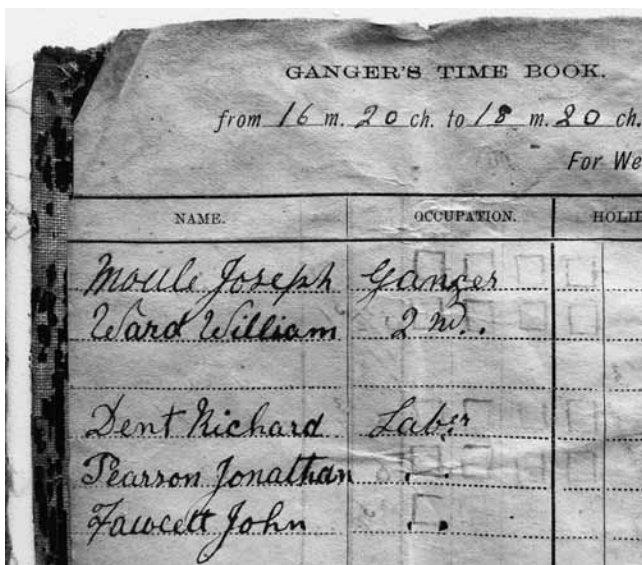 GANGER'S TIME BOOK.
from 16 m. 20 ch. to 18 m. 20 ch.
For We
NAME. OCCUPATION. HOLID
Moule Joseph Ganger
Ward William 2nd..
Dent Richard Laber
Pearson Jonathan " "
Fawcett John " "